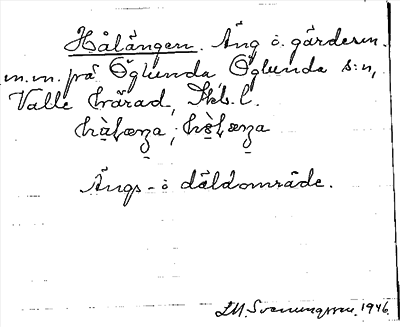 Hålängen. Äng o. gärden
m.m. på Öglunda Öglunda s:n,
Valle härad, Skb. l.
Ängs- o däldområde.
S.M. Svenungsson. 1946.